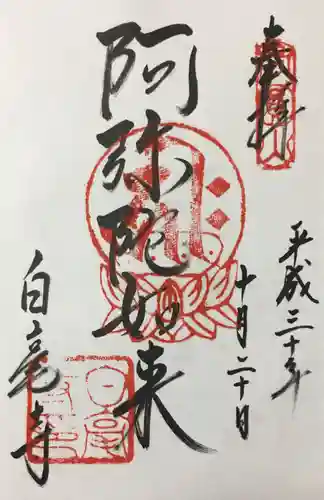 奉拝
平成三十年
十月二十日
阿弥陀如来
白竜寺